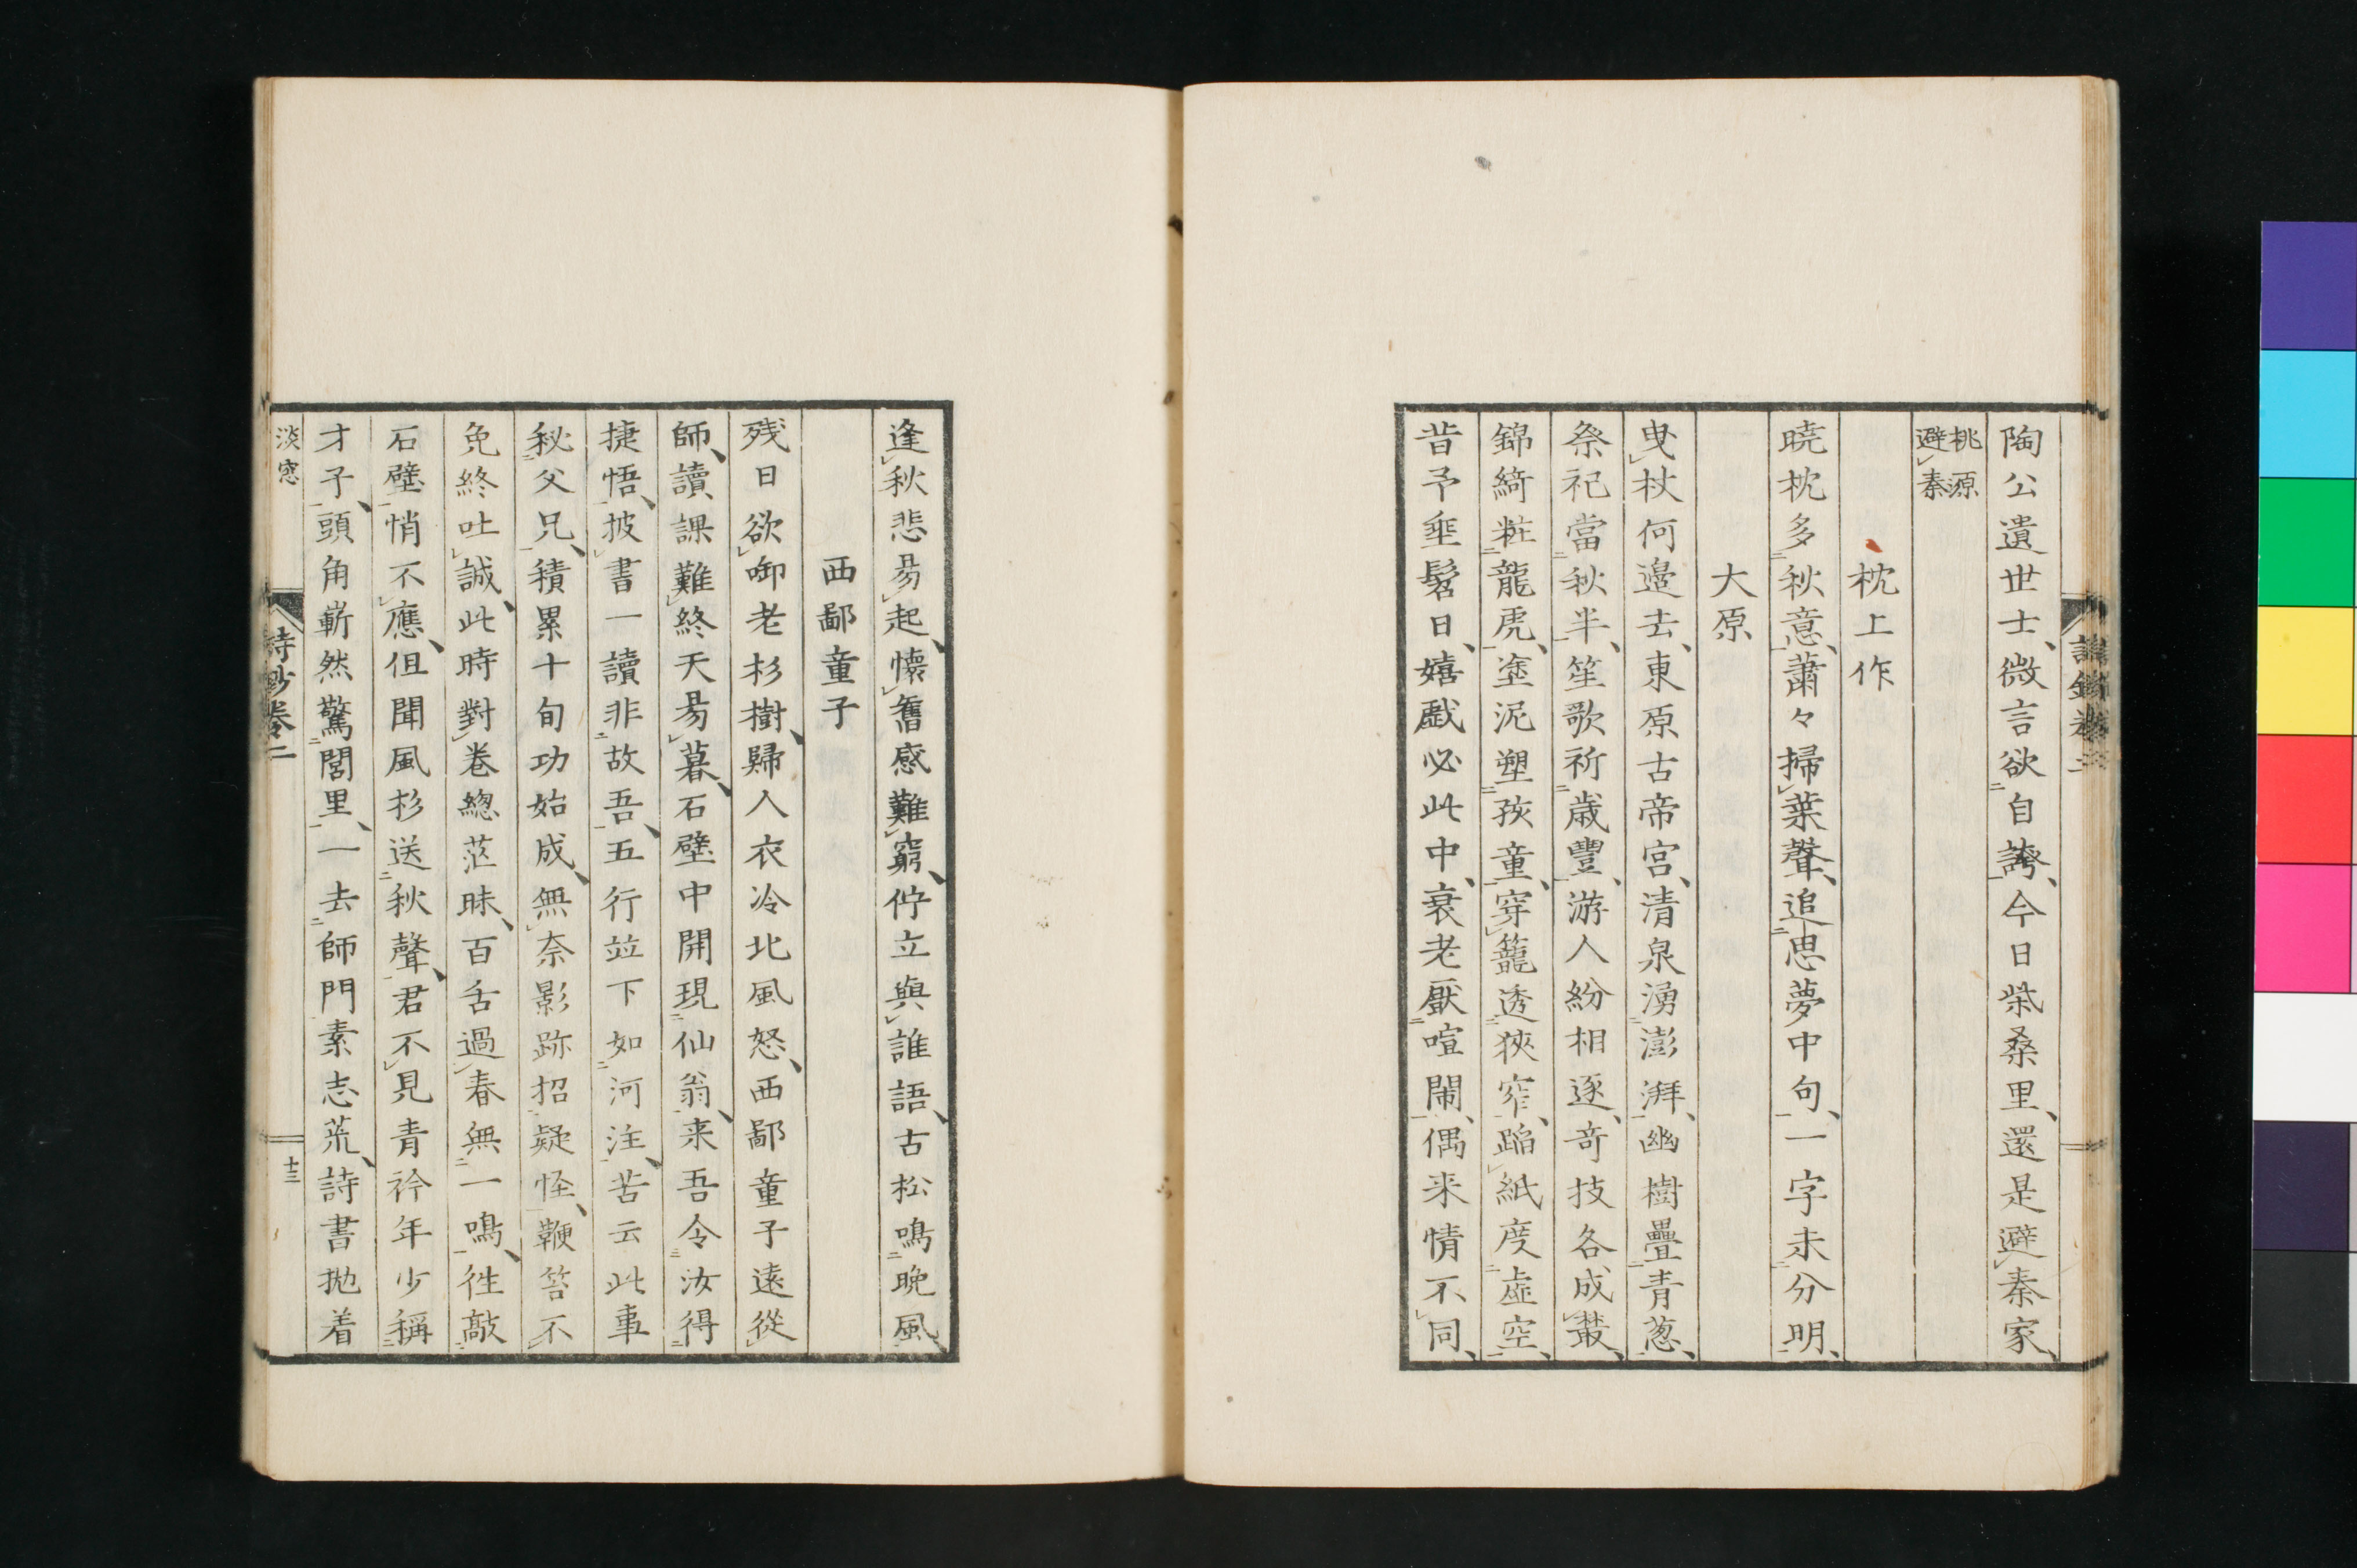 陶公遺世士微言欲自誇今日柴桑里還是避秦家
桃源
避秦
枕上作
曉枕多秋意蕭々掃葉聲追思夢中句一字未分明
大原
曳杖何邉去東原古帝宮清泉湧澎湃幽樹疊青葱
祭祀當秋半笙歌祈歳豐游人紛相逐奇技各成叢
錦綺粧龍虎塗泥塑孩童穿籠透狹窄蹈紙度虚空
昔予垂髫日嬉戯必此中衰老厭喧鬧偶来情不同
逢秋悲易起懐舊感難窮佇立與誰語古松鳴晩風
西鄙童子
残日欲啣老杉樹歸人衣冷北風怒西鄙童子遠從
師讀課難終天易暮石壁中開現仙翁来吾令汝得
捷悟披書一讀非故吾五行竝下如河注苦云此事
秘父兄積累十旬功始成無奈影跡招疑怪鞭笞不
免終吐誠此時對巻總茫昧百舌過春無一鳴徃敲
石壁悄不應但聞風杉送秋聲君不見青衿年少稱
才子頭角嶄然驚閭里一去師門素志荒詩書抛着
淡窓
詩鈔巻二
十三